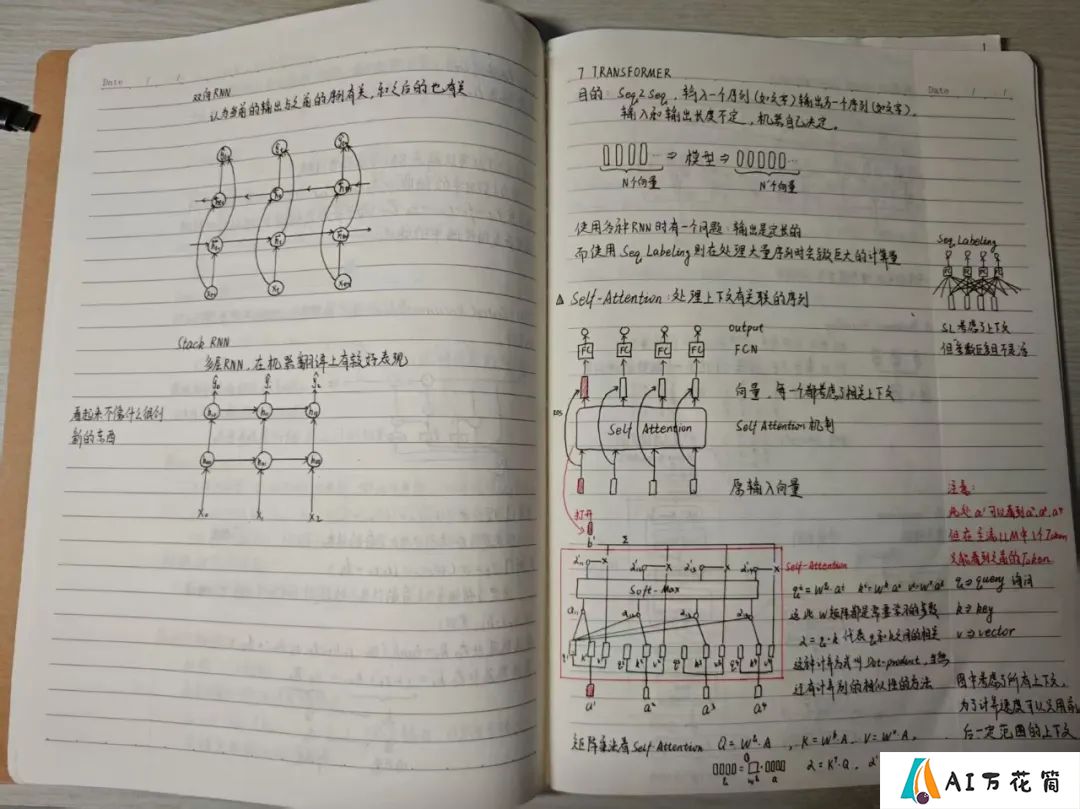 Date / /
双向RNN
认为当前的输出与之前的序列有关,和之后的也有关
Stack RNN
多层RNN,在机器翻译上有较好表现
看起来不像什么很创
新的东西
X₀ X₁ X₂
1
7 TRANSFORMER
Date / /
目的: Seq2Seq, 输入一个序列(如文字)输出另一个序列(如文字),
输入和输出长度不定,机器自己决定。
⇒ 模型 ⇒
N个向量 N'个向量
使用多种RNN时有一个问题:输出是定长的
而使用Seq Labeling则在处理大量序列时会导致巨大的计算量
Seq Labeling
FC FC FC FC
SL考虑了上下文
△ Self-Attention:处理上下文有关联的序列
output
FC FC FC FC FCN
向量,每一个都考虑了相关上下文
Self Attention Self Attention机制
原输入向量
打开
b¹ Σ
注意:
此处a¹可以看到a²,a³,a⁴
但在主流LLM中1个Token
只能看到之前的Token
Self-Attention
Soft-Max
q⇒query 询问
这些W矩阵都是需要学习的参数
k⇒key
α=q·k 代表q和k之间的相关
v⇒vector
这种计算方式叫Dot-product,当然
还有计算别的相似性的方法
q¹ k¹ v¹ q² k² v² q³ k³ v³ q⁴ k⁴ v⁴
a¹ a² a³ a⁴
图中考虑了所有上下文,
为了计算速度可以只用前
后一定范围的上下文
矩阵乘法看Self-Attention Q=Wᵠ·A, K=Wᵏ·A, V=Wᵛ·A,
α=Kᵀ·Q,
AI万花筒